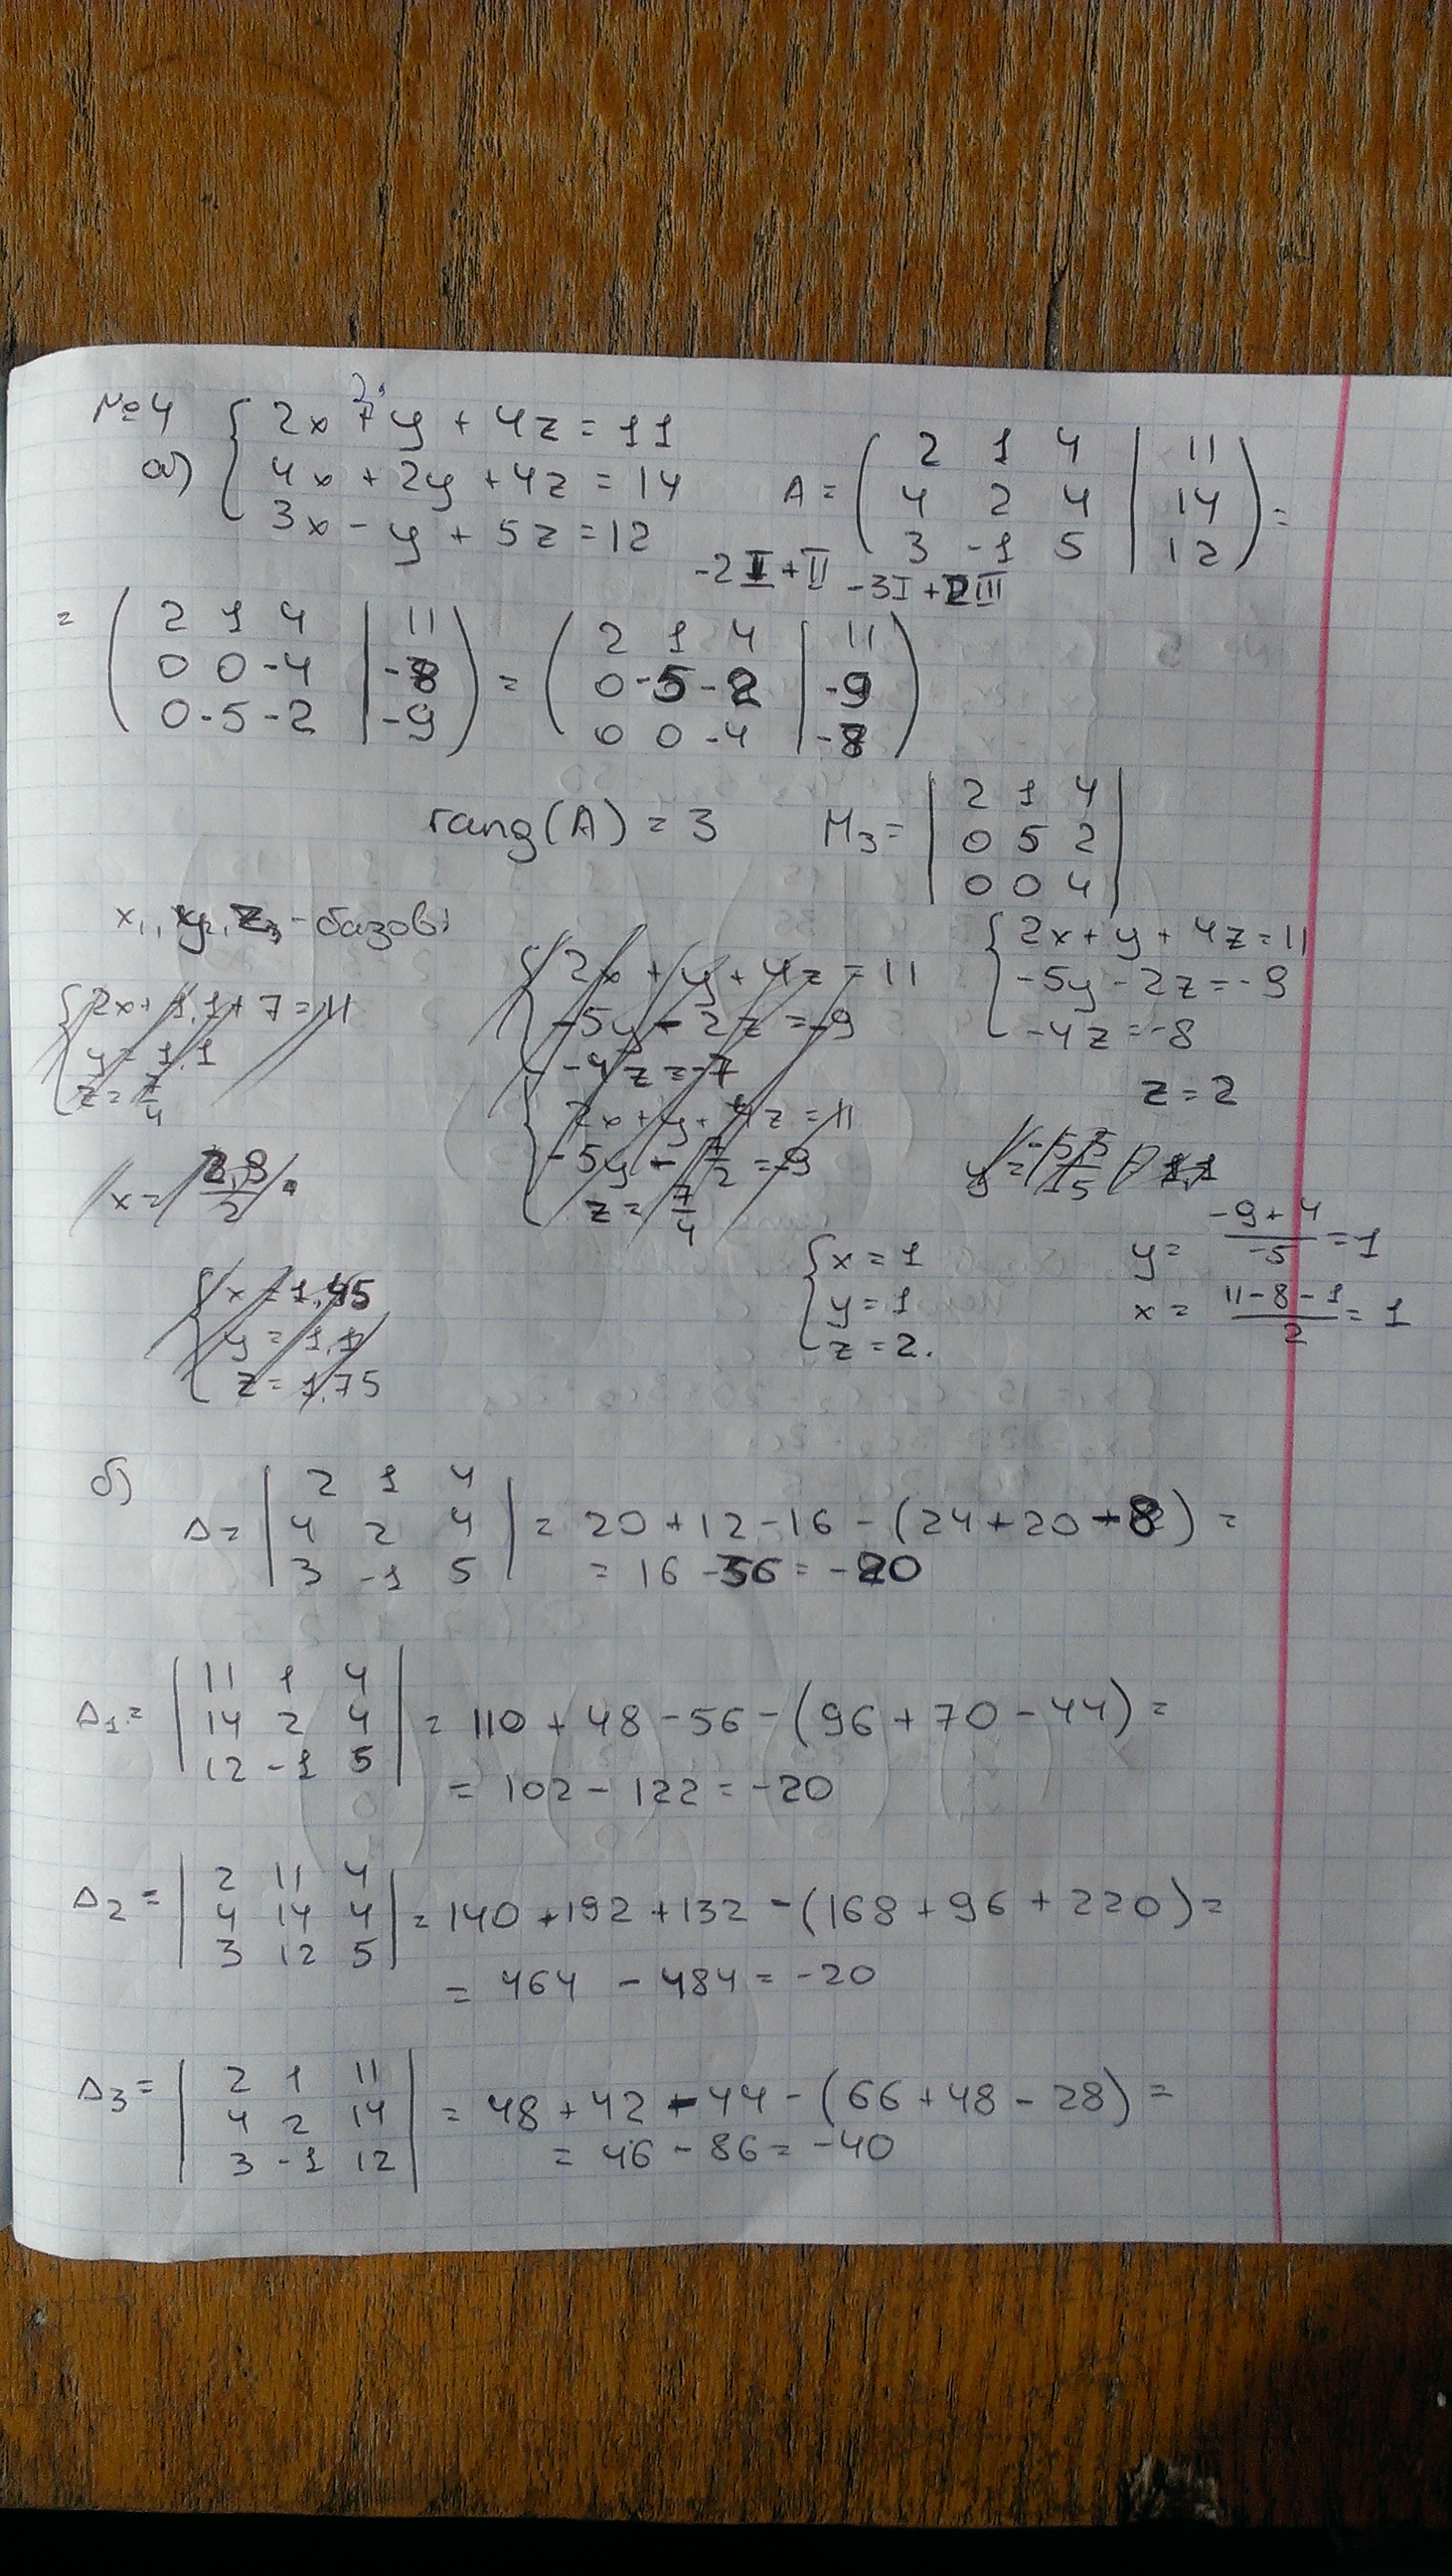 №4
а) { 2x + y + 4z = 11
4x + 2y + 4z = 14
3x - y + 5z = 12
A = ( 2 1 4 | 11
4 2 4 | 14
3 -1 5 | 12 ) =
-2I + II -3I + 2III
= ( 2 1 4 | 11
0 0 -4 | -8
0 -5 -2 | -9 ) = ( 2 1 4 | 11
0 -5 -2 | -9
0 0 -4 | -8 )
rang(A) = 3
M3 = | 2 1 4
0 5 2
0 0 4 |
x1, y2, z3 - базові
{ 2x + 1,1 + 7 = 11
y = 1,1
z = 7/4
x = 2,9/2
{ x = 1,45
y = 1,1
z = 1,75
{ 2x + y + 4z = 11
-5y - 2z = -9
-4z = -7
{ 2x + y + 4z = 11
-5y - 7/2 = -9
z = 7/4
{ 2x + y + 4z = 11
-5y - 2z = -9
-4z = -8
z = 2
y = (-9 + 4)/-5 = 1
x = (11 - 8 - 1)/2 = 1
{ x = 1
y = 1
z = 2.
б)
Δ = | 2 1 4
4 2 4
3 -1 5 | = 20 + 12 - 16 - (24 + 20 - 8) =
= 16 - 36 = -20
Δ1 = | 11 1 4
14 2 4
12 -1 5 | = 110 + 48 - 56 - (96 + 70 - 44) =
= 102 - 122 = -20
Δ2 = | 2 11 4
4 14 4
3 12 5 | = 140 + 192 + 132 - (168 + 96 + 220) =
= 464 - 484 = -20
Δ3 = | 2 1 11
4 2 14
3 -1 12 | = 48 + 42 - 44 - (66 + 48 - 28) =
= 46 - 86 = -40